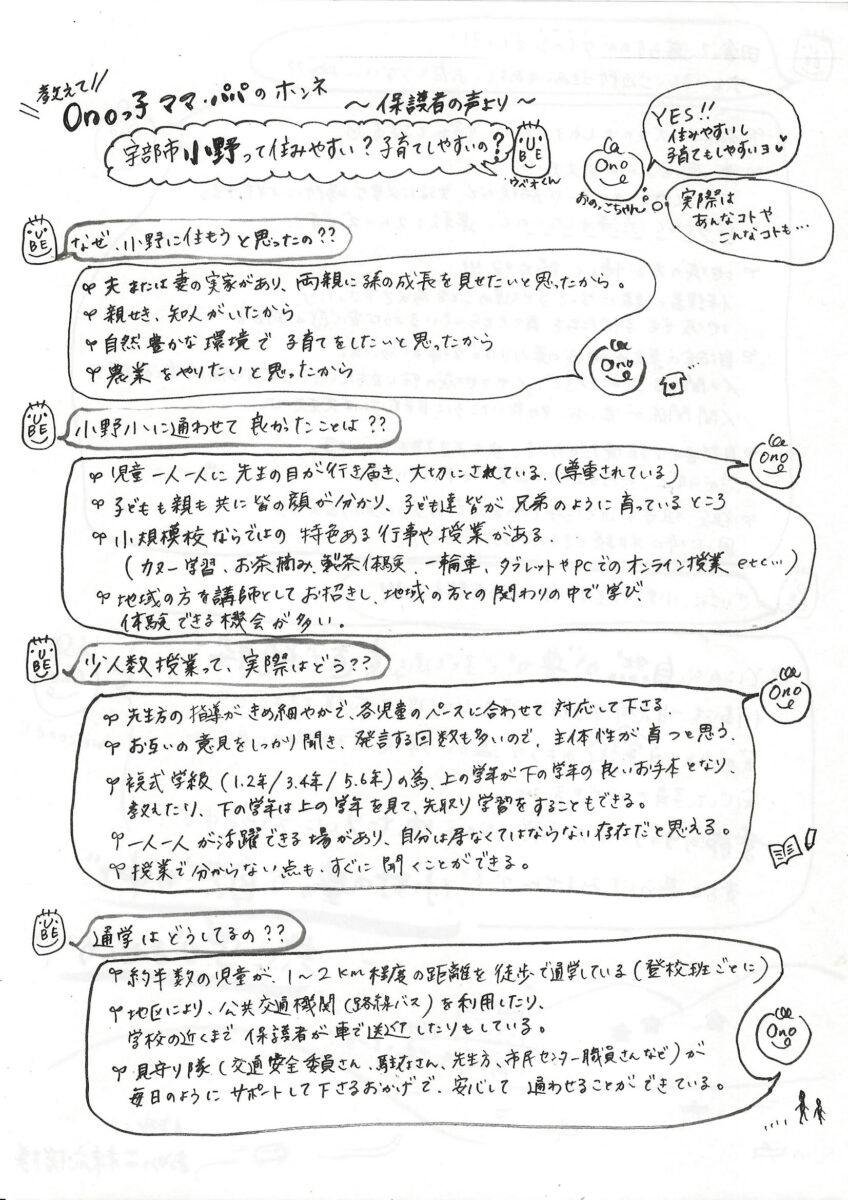 教えて!!
Onoっ子 ママ・パパの ホンネ
〜 保護者の声より 〜
宇部市 小野って住みやすい？子育てしやすいの？
UBE
ウベオくん
Ono
おのこちゃん
YES!!
住みやすいし
子育てもしやすいヨ♥
実際は
あんなコトや
こんなコトも…
UBE
なぜ、小野に住もうと思ったの??
夫または妻の実家があり、両親に孫の成長を見せたいと思ったから。
親せき、知人がいたから
自然豊かな環境で子育てをしたいと思ったから
農業をやりたいと思ったから
Ono
UBE
小野小に通わせて良かたことは??
Ono
児童一人一人に先生の目が行き届き、大切にされている。(尊重されている)
子どもも親も共に皆の顔が分かり、子ども達皆が兄弟のように育っているところ
小規模校ならではの特色ある行事や授業がある。
(カヌー学習、お茶摘み、製茶体験、一輪車、タブレットやPCでのオンライン授業etc…)
地域の方を講師としてお招きし、地域の方との関わりの中で学び、
体験できる機会が多い。
UBE
少人数授業って、実際はどう??
Ono
先生方の指導がきめ細やかで、各児童のペースに合わせて対応して下さる。
お互いの意見をしっかり聞き、発言する回数も多いので、主体性が育つと思う。
複式学級(1.2年/3.4年/5.6年)の為、上の学年が下の学年の良いお手本となり、
教えたり、下の学年は上の学年を見て、先取り学習をすることもできる。
一人一人が活躍できる場があり、自分は居なくてはならない存在だと思える。
授業で分からない点も、すぐに聞くことができる。
UBE
通学はどうしてるの??
約半数の児童が、1〜2km程度の距離を徒歩で通学している(登校班ごとに)
地区により、公共交通機関(路線バス)を利用したり、
学校の近くまで保護者が車で送迎したりもしている。
Ono
見守り隊(交通安全委員さん、駐在さん、先生方、市民センター職員さんなど)が
毎日のようにサポートして下さるおかげで、安心して通わせることができている。